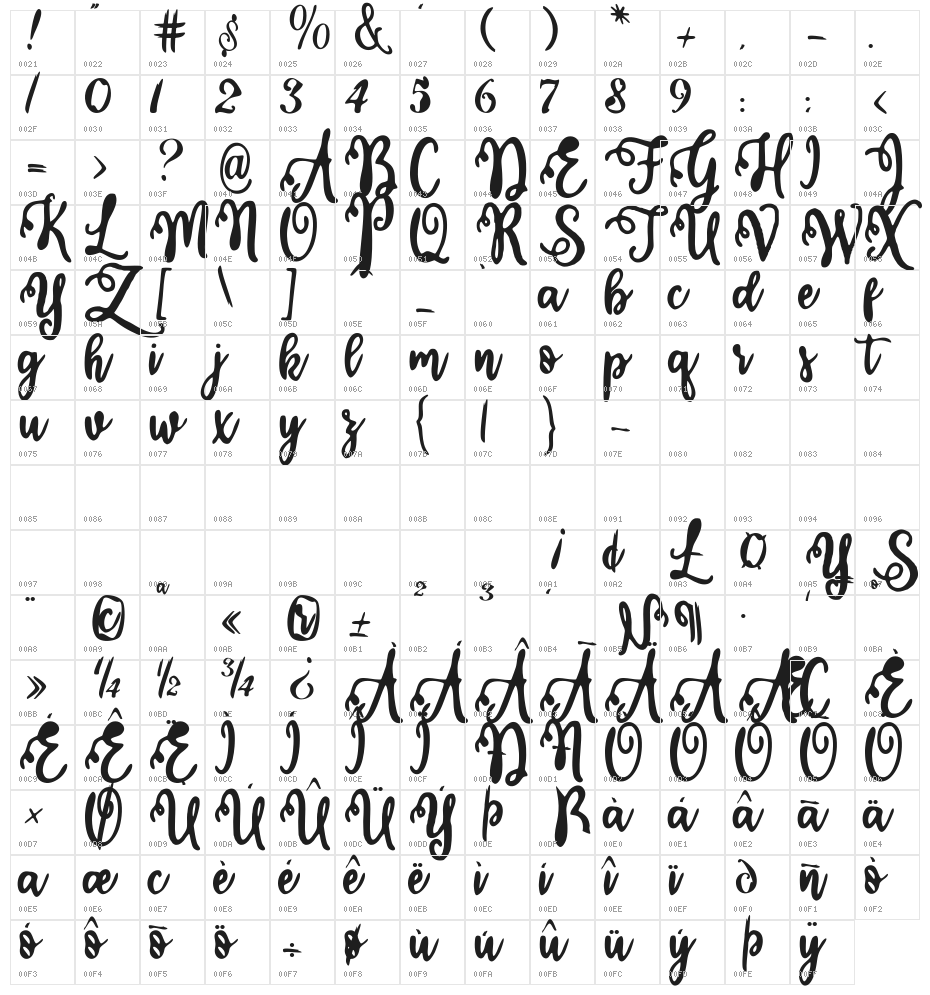 ! " # $ % & ' ( ) * + , - .
0021 0022 0023 0024 0025 0026 0027 0028 0029 002A 002B 002C 002D 002E
/ 0 1 2 3 4 5 6 7 8 9 : ; <
002F 0030 0031 0032 0033 0034 0035 0036 0037 0038 0039 003A 003B 003C
= > ? @ A B C D E F G H I J
003D 003E 003F 0040 0041 0042 0043 0044 0045 0046 0047 0048 0049 004A
K L M N O P Q R S T U V W X
004B 004C 004D 004E 004F 0050 0051 0052 0053 0054 0055 0056 0057 0058
Y Z [ \ ] ^ _ ` a b c d e f
0059 005A 005B 005C 005D 005E 005F 0060 0061 0062 0063 0064 0065 0066
g h i j k l m n o p q r s t
0067 0068 0069 006A 006B 006C 006D 006E 006F 0070 0071 0072 0073 0074
u v w x y z { | } ~
0075 0076 0077 0078 0079 007A 007B 007C 007D 007E 0080 0082 0083 0084
0085 0086 0087 0088 0089 008A 008B 008C 008E 0091 0092 0093 0094 0096
¡ ¢ £ ¤ ¥ §
0097 0098 0099 009A 009B 009C 009E 009F 00A1 00A2 00A3 00A4 00A5 00A7
¨ © ª « ® ± ² ³ ´ µ ¶ · ¸ º
00A8 00A9 00AA 00AB 00AE 00B1 00B2 00B3 00B4 00B5 00B6 00B7 00B9 00BA
» ¼ ½ ¾ ¿ À Á Â Ã Ä Å Æ Ç È
00BB 00BC 00BD 00BE 00BF 00C0 00C1 00C2 00C3 00C4 00C5 00C6 00C7 00C8
É Ê Ë Ì Í Î Ï Ð Ñ Ò Ó Ô Õ Ö
00C9 00CA 00CB 00CC 00CD 00CE 00CF 00D0 00D1 00D2 00D3 00D4 00D5 00D6
× Ø Ù Ú Û Ü Ý Þ ß à á â ã ä
00D7 00D8 00D9 00DA 00DB 00DC 00DD 00DE 00DF 00E0 00E1 00E2 00E3 00E4
å æ ç è é ê ë ì í î ï ð ñ ò
00E5 00E6 00E7 00E8 00E9 00EA 00EB 00EC 00ED 00EE 00EF 00F0 00F1 00F2
ó ô õ ö ÷ ø ù ú û ü ý þ ÿ
00F3 00F4 00F5 00F6 00F7 00F8 00F9 00FA 00FB 00FC 00FD 00FE 00FF